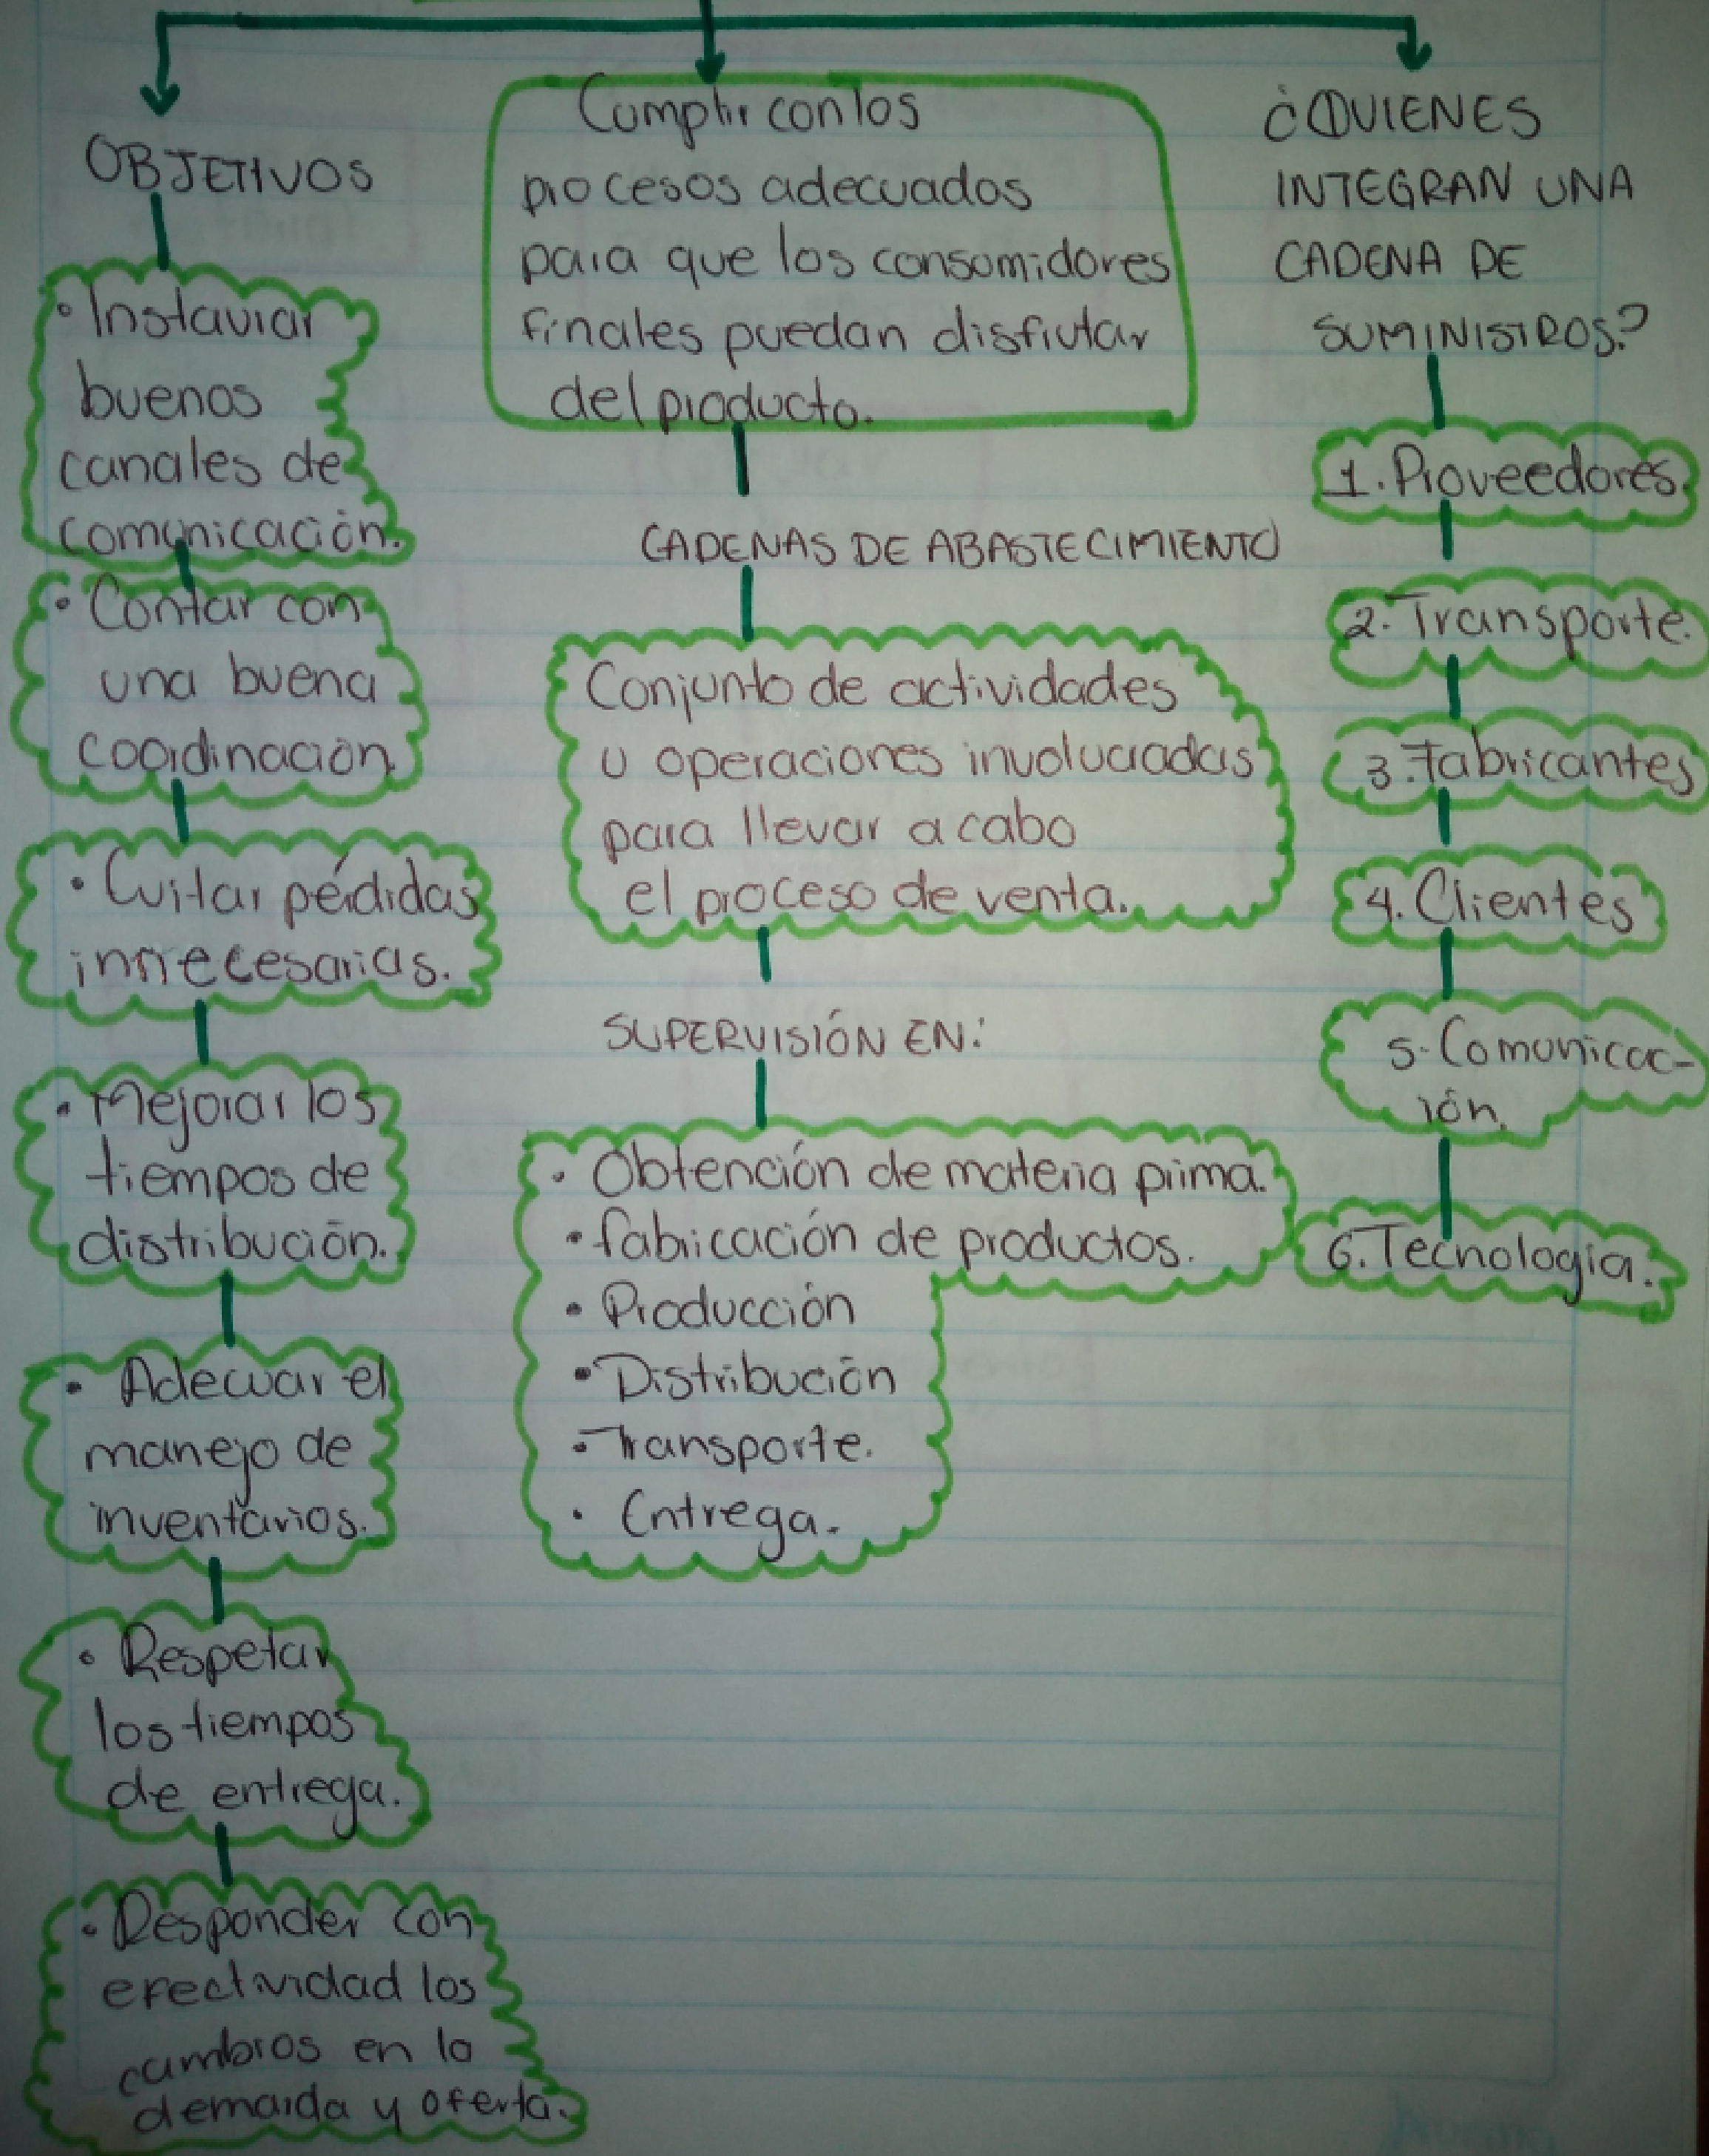 OBJETIVOS
• Instaurar
buenos
canales de
comunicación.
• Contar con
una buena
coordinación.
• Evitar pérdidas
innecesarias.
• Mejorar los
tiempos de
distribución.
• Adecuar el
manejo de
inventarios.
• Respetar
los tiempos
de entrega.
• Responder con
efectividad los
cambios en la
demanda y oferta.
Cumplir con los
procesos adecuados
para que los consumidores
finales puedan disfrutar
del producto.
CADENAS DE ABASTECIMIENTO
Conjunto de actividades
u operaciones involucradas
para llevar a cabo
el proceso de venta.
SUPERVISIÓN EN:
• Obtención de materia prima.
• fabricación de productos.
• Producción
• Distribución
• Transporte.
• Entrega.
¿QUIENES
INTEGRAN UNA
CADENA DE
SUMINISTROS?
1. Proveedores.
2. Transporte.
3. Fabricantes
4. Clientes
5. Comunicac-
ión.
6. Tecnologia.